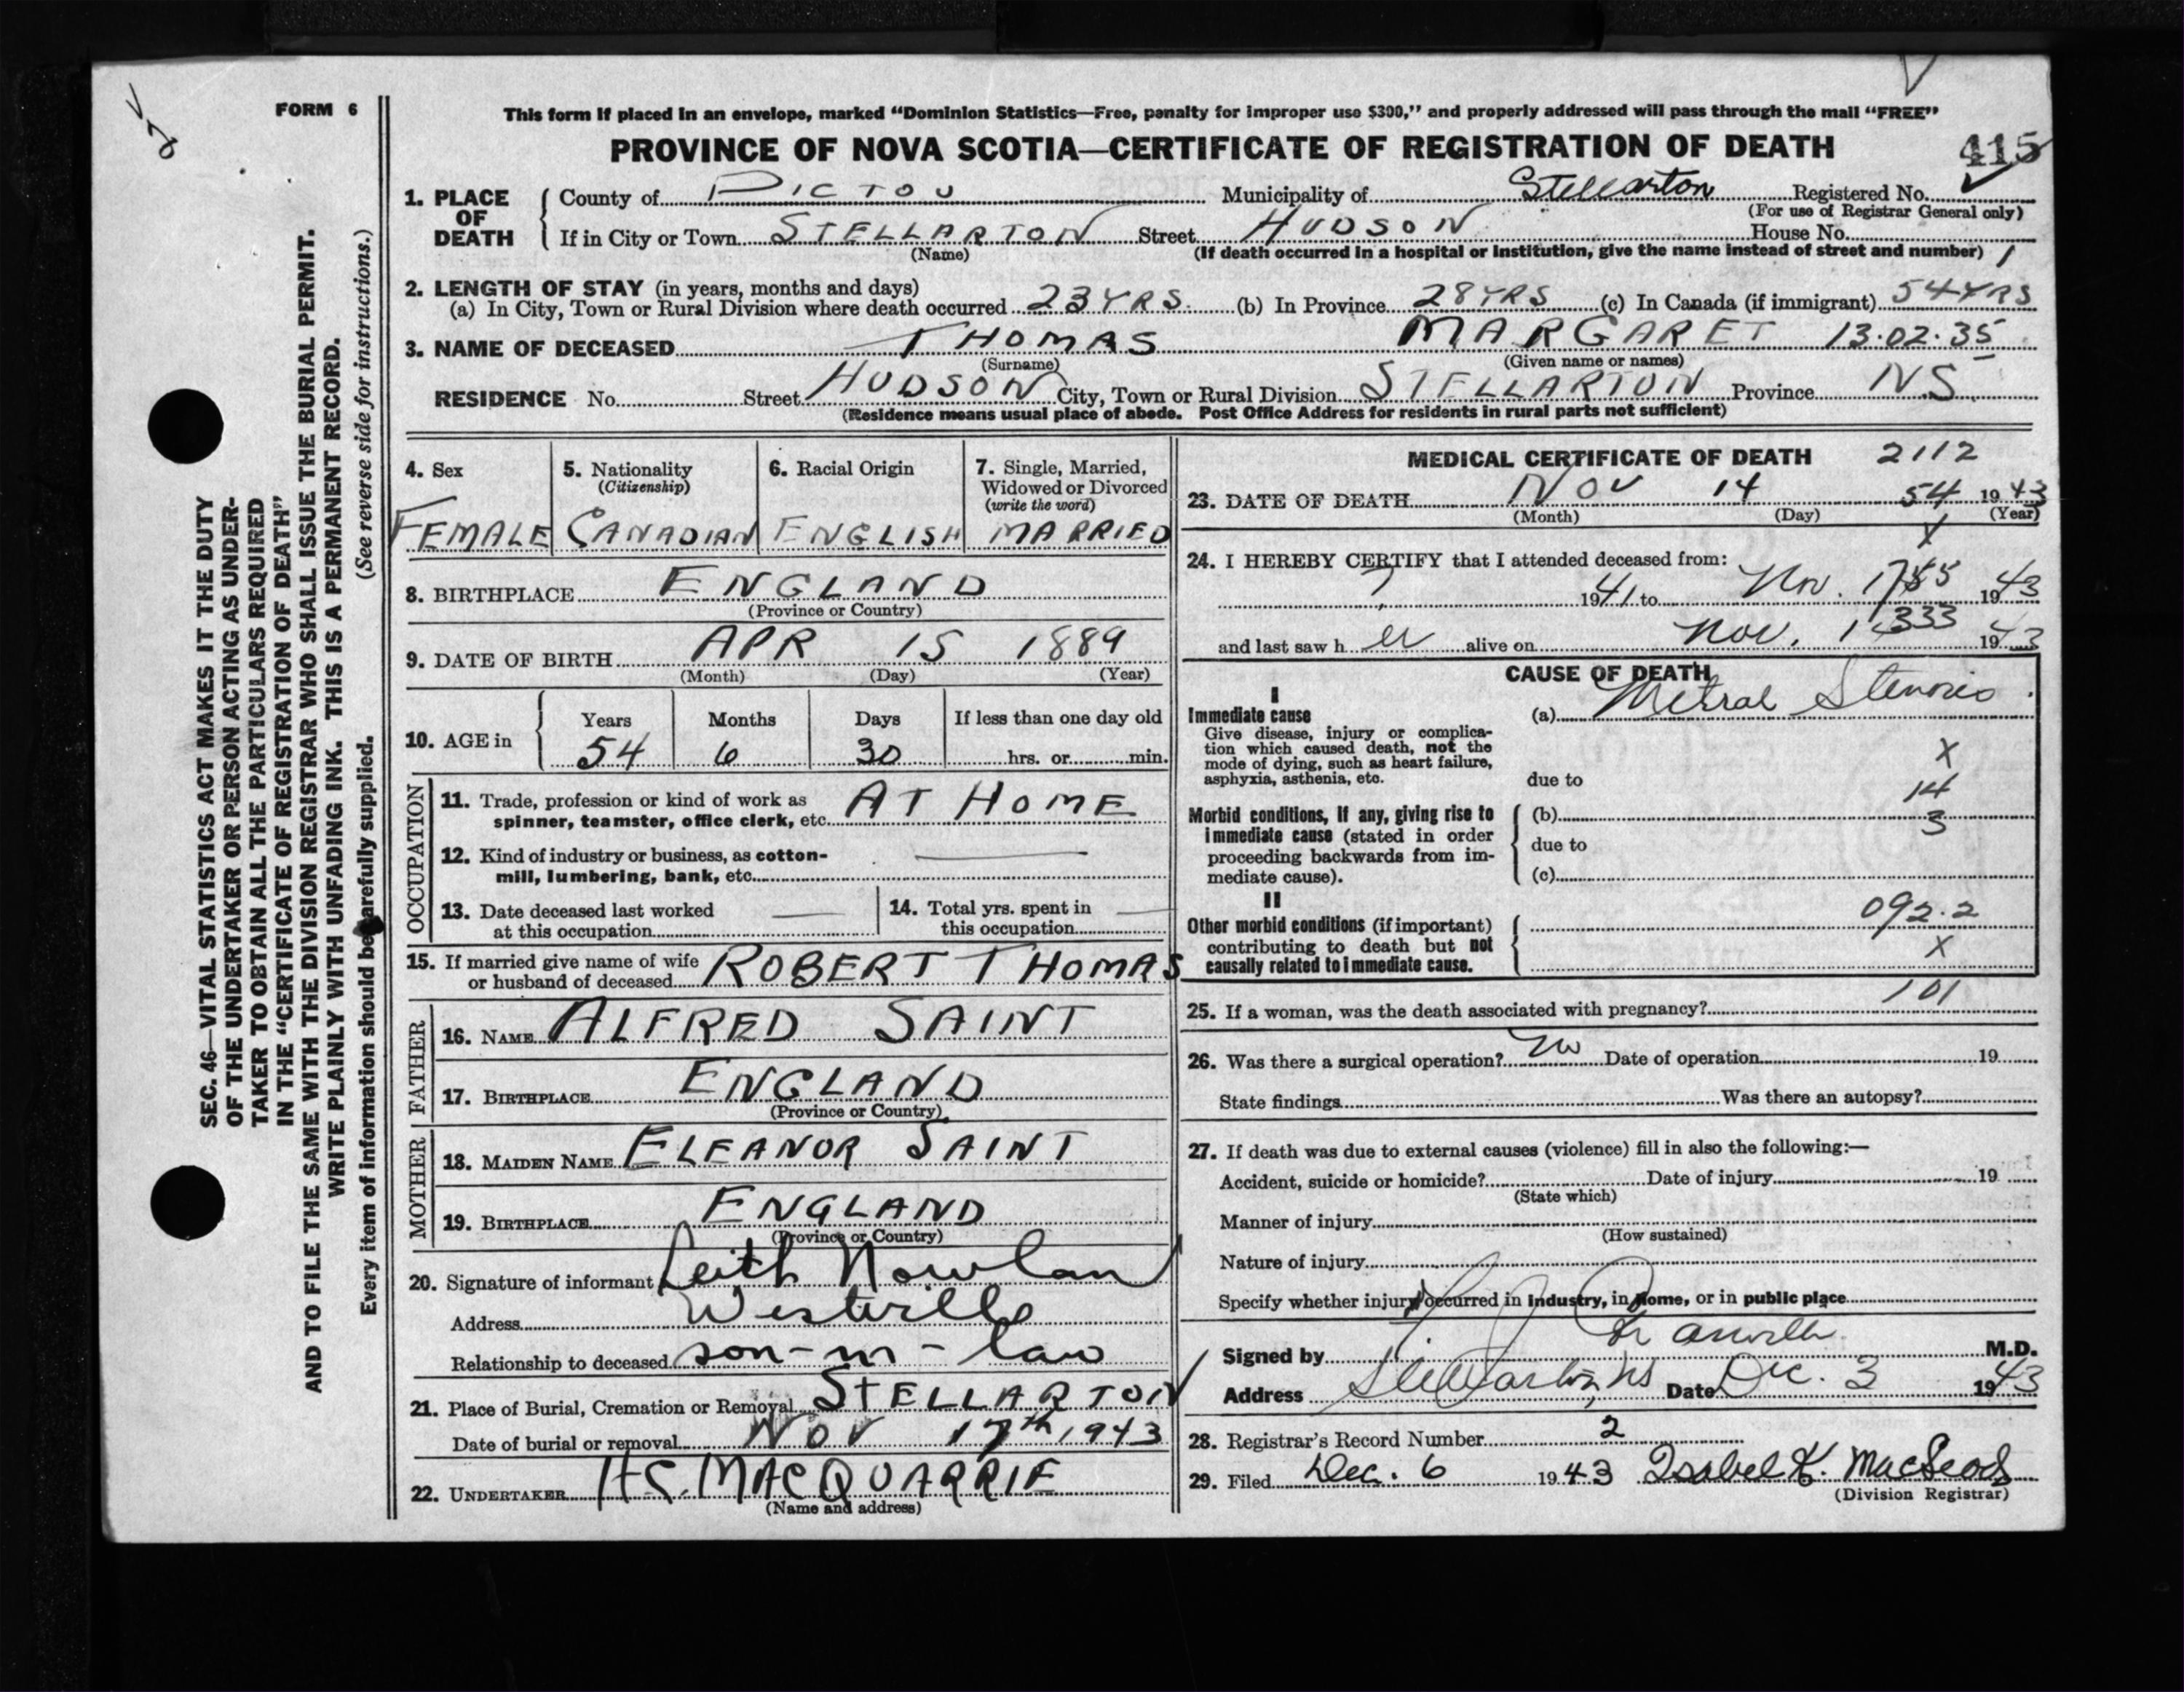 FORM 6
This form if placed in an envelope, marked “Dominion Statistics—Free, penalty for improper use $300,” and properly addressed will pass through the mail “FREE”
PROVINCE OF NOVA SCOTIA—CERTIFICATE OF REGISTRATION OF DEATH
415
1. PLACE OF DEATH
County of PICTOU Municipality of Stellarton Registered No.
(For use of Registrar General only)
If in City or Town STELLARTON Street HUDSON House No.
(Name) (If death occurred in a hospital or institution, give the name instead of street and number) 1
2. LENGTH OF STAY (in years, months and days)
(a) In City, Town or Rural Division where death occurred 23 YRS. (b) In Province 28 YRS (c) In Canada (if immigrant) 54 YRS
3. NAME OF DECEASED THOMAS MARGARET 13.02.35
(Surname) (Given name or names)
RESIDENCE No. Street HUDSON City, Town or Rural Division STELLARTON Province NS.
(Residence means usual place of abode. Post Office Address for residents in rural parts not sufficient)
4. Sex
FEMALE
5. Nationality
(Citizenship)
CANADIAN
6. Racial Origin
ENGLISH
7. Single, Married,
Widowed or Divorced
(write the word)
MARRIED
8. BIRTHPLACE ENGLAND
(Province or Country)
9. DATE OF BIRTH APR 15 1889
(Month) (Day) (Year)
10. AGE in
Years Months Days If less than one day old
54 6 30 hrs. or min.
OCCUPATION
11. Trade, profession or kind of work as
spinner, teamster, office clerk, etc. AT HOME
12. Kind of industry or business, as cotton-
mill, lumbering, bank, etc. —
13. Date deceased last worked
at this occupation —
14. Total yrs. spent in
this occupation —
15. If married give name of wife
or husband of deceased ROBERT THOMAS
FATHER
16. NAME ALFRED SAINT
17. BIRTHPLACE ENGLAND
(Province or Country)
MOTHER
18. MAIDEN NAME ELEANOR SAINT
19. BIRTHPLACE ENGLAND
(Province or Country)
20. Signature of informant Leith Nowlan
Address Westville
Relationship to deceased son-in-law
21. Place of Burial, Cremation or Removal STELLARTON
Date of burial or removal NOV 17th 1943
22. UNDERTAKER HS. MACQUARRIE
(Name and address)
MEDICAL CERTIFICATE OF DEATH 2112
23. DATE OF DEATH NOV 14 54 1943
(Month) (Day) (Year)
X
24. I HEREBY CERTIFY that I attended deceased from:
1941 to Nov. 1943
333
and last saw her alive on Nov. 1943
CAUSE OF DEATH
I
Immediate cause
Give disease, injury or complica-
tion which caused death, not the
mode of dying, such as heart failure,
asphyxia, asthenia, etc.
(a) Metral Stenosis
X
due to
14
Morbid conditions, if any, giving rise to
immediate cause (stated in order
proceeding backwards from im-
mediate cause).
(b)
3
due to
(c)
II
Other morbid conditions (if important)
contributing to death but not
causally related to immediate cause.
092.2
X
25. If a woman, was the death associated with pregnancy? 101
26. Was there a surgical operation? No Date of operation 19
State findings Was there an autopsy?
27. If death was due to external causes (violence) fill in also the following:—
Accident, suicide or homicide? Date of injury 19
(State which)
Manner of injury
(How sustained)
Nature of injury
Specify whether injury occurred in industry, in home, or in public place
Signed by M.D.
Address Stellarton, NS Date Dec. 3 1943
28. Registrar's Record Number 2
29. Filed Dec. 6 1943 Isabel K. MacLeod
(Division Registrar)
SEC. 46—VITAL STATISTICS ACT MAKES IT THE DUTY
OF THE UNDERTAKER OR PERSON ACTING AS UNDER-
TAKER TO OBTAIN ALL THE PARTICULARS REQUIRED
IN THE “CERTIFICATE OF REGISTRATION OF DEATH”
AND TO FILE THE SAME WITH THE DIVISION REGISTRAR WHO SHALL ISSUE THE BURIAL PERMIT.
WRITE PLAINLY WITH UNFADING INK. THIS IS A PERMANENT RECORD.
Every item of information should be carefully supplied. (See reverse side for instructions.)